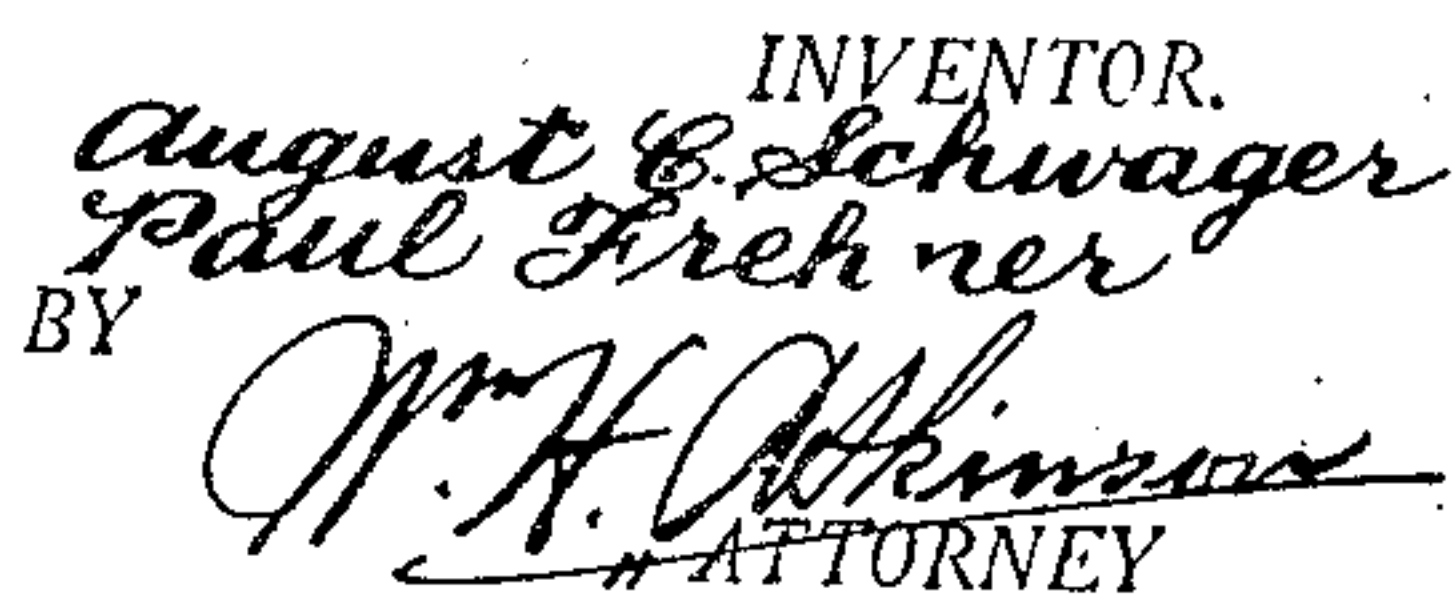 INVENTOR.
August C. Schwager
Paul Frehner
BY
Wm. H. Atkinson
ATTORNEY